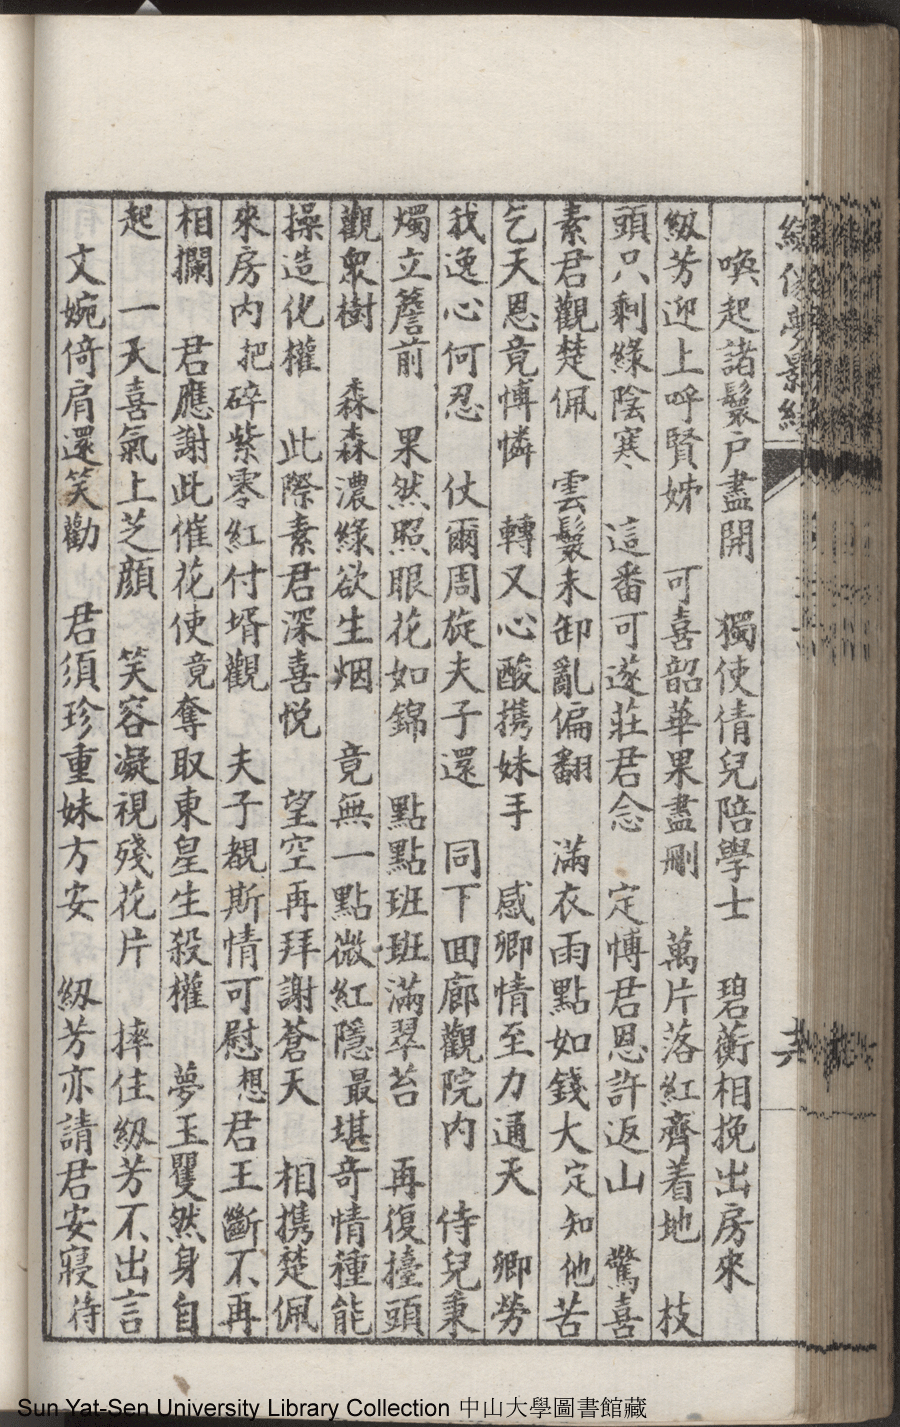 喚起諸鬟戶盡開　獨使倩兒陪學士　碧蘅相挽出房來
級芳迎上呼賢姊　可喜韶華果盡刪　萬片落紅齊着地　枝
頭只剩綠陰寒　這番可遂莊君念　定博君恩許返山　驚喜
素君觀楚佩　雲鬟未卸亂偏翻　滿衣雨點如錢大定知他苦
乞天恩竟博憐　轉又心酸携妹手　感卿情至力通天　卿勞
我逸心何忍　仗爾周旋夫子還　同下囬廊觀院内　侍兒秉
燭立簷前　果然照眼花如錦　點點班班滿翠苔　再復擡頭
觀衆樹　森森濃綠欲生烟　竟無一點微紅隱最堪奇情種能
操造化權　此際素君深喜悅　望空再拜謝蒼天　相携楚佩
來房内把碎紫零紅付壻觀　夫子覩斯情可慰想君王斷不再
相攔　君應謝此催花使竟奪取東皇生殺權　夢玉瞿然身自
起　一天喜氣上芝顔　笑容凝視殘花片　摔住級芳不出言
文婉倚肩還笑勸　君須珍重妹方安　級芳亦請君安寢待
夢景緣
Sun Yat-Sen University Library Collection 中山大學圖書館藏